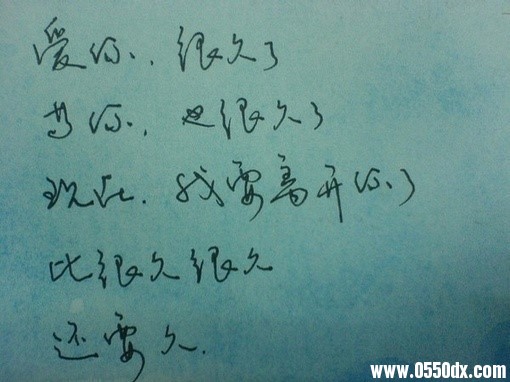 爱你.很久了
等你.也很久了
现在.我要离开你了
比很久很久
还要久.
www.0550dx.com